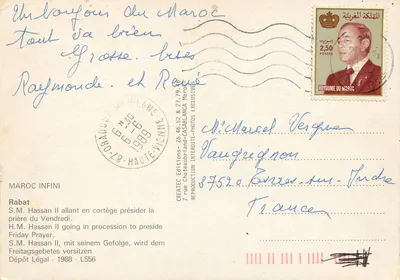 Un bonjour du Maroc
tout va bien
Grosse bises
Raymonde et René
المملكة المغربية
2,50
ROYAUME DU MAROC
87-HAUTE-VIENNE
1989
CREATEC Editions - 26.46.52 & 27.79.
7 rue Chateaubriand-CASABLANCA Maroc
REPRODUCTION INTERDITE-PHOTOS EXCLUSIVES
M. Marcel Vergnon
Vauprignon
37520 Esvres-sur-Indre
France
MAROC INFINI
Rabat
S.M. Hassan II allant en cortège présider la
prière du Vendredi.
H.M. Hassan II going in procession to preside
Friday Prayer.
S.M. Hassan II, mit seinem Gefolge, wird dem
Freitagsgebetes vorsitzen
Dépôt Légal - 1988 - L556